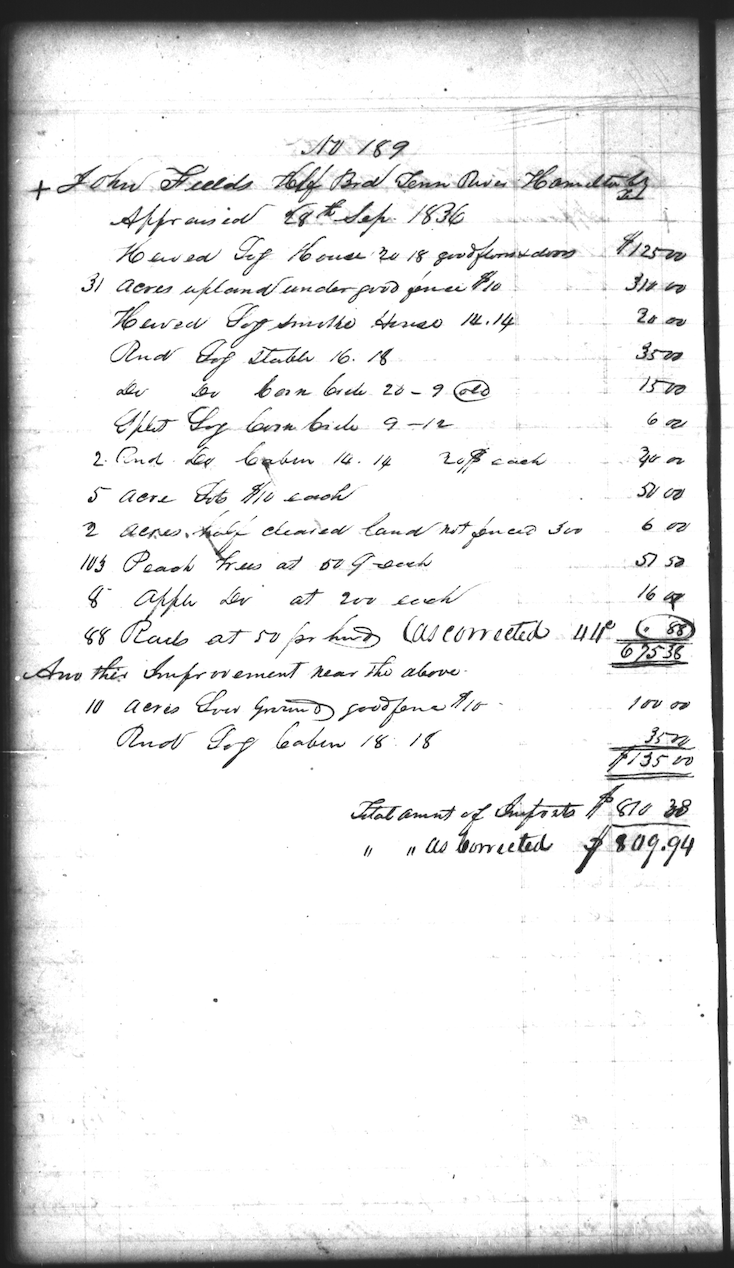 No 189
+ John Fields Hlf Brd Tenn River Hamilton Co Ten
Appraised 28th Sep. 1836
Hewed Log House 20 18 good floors & doors $125 00
31 acres upland under good fence $10 310 00
Hewed Log smoke House 14.14 20 00
Rnd Log stable 16.18 35 00
Do Do Corn Crib 20-9 old 15 00
Split Log Corn Crib 9-12 6 00
2 Rnd Do Cabin 14.14 20$ each 40 00
5 acre Lots $10 each 50 00
2 acres half cleared land not fenced 300 6 00
103 Peach trees at 50 ¢ each 51 50
8 Apple Do at 200 each 16 00
88 Rails at 50 pr hund (as corrected 44c . 88
675 38
Another Improvement near the above
10 acres Low ground good fence $10 100 00
Rnd Log Cabin 18 18 35 00
$135 00
Total amnt of Impnts $ 810 38
" " as Corrected $ 809.94